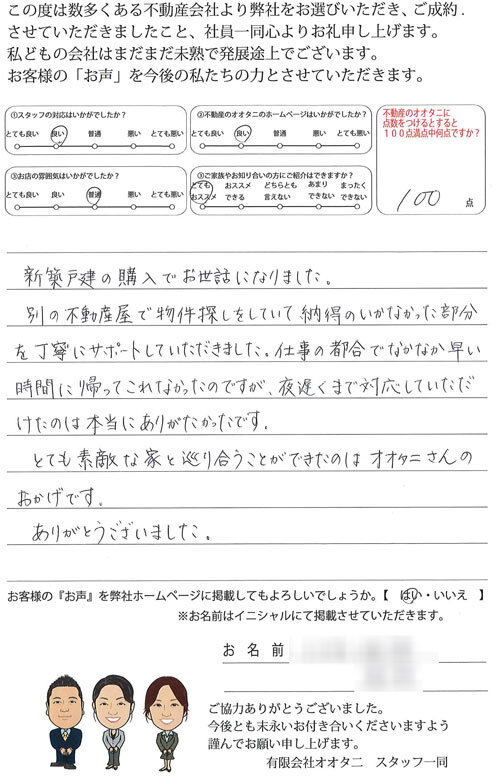 この度は数多くある不動産会社より弊社をお選びいただき、ご成約.
させていただきましたこと、社員一同心よりお礼申し上げます。
私どもの会社はまだまだ未熟で発展途上でございます。
お客様の「お声」を今後の私たちの力とさせていただきます。
①スタッフの対応はいかがでしたか？
とても良い 良い 普通 悪い とても悪い
②不動産のオオタニのホームページはいかがでしたか？
とても良い 良い 普通 悪い とても悪い
③お店の雰囲気はいかがでしたか？
とても良い 良い 普通 悪い とても悪い
④ご家族やお知り合いの方にご紹介はできますか？
とても おススメ どちらとも あまり まったく
おススメ できる 言えない できない できない
不動産のオオタニに
点数をつけるとすると
１００点満点中何点ですか？
100 点
新築戸建の購入でお世話になりました。
別の不動産屋で物件探しをしていて納得のいかなかった部分
を丁寧にサポートしていただきました。仕事の都合でなかなか早い
時間に帰ってこれなかったのですが、夜遅くまで対応していただ
けたのは本当にありがたかったです。
とても素敵な家と巡り合うことができたのはオオタニさんの
おかげです。
ありがとうございました。
お客様の『お声』を弊社ホームページに掲載してもよろしいでしょうか。【 はい・いいえ 】
※お名前はイニシャルにて掲載させていただきます。
お 名 前
ご協力ありがとうございました。
今後とも末永いお付き合いくださいますよう
謹んでお願い申し上げます。
有限会社オオタニ スタッフ一同